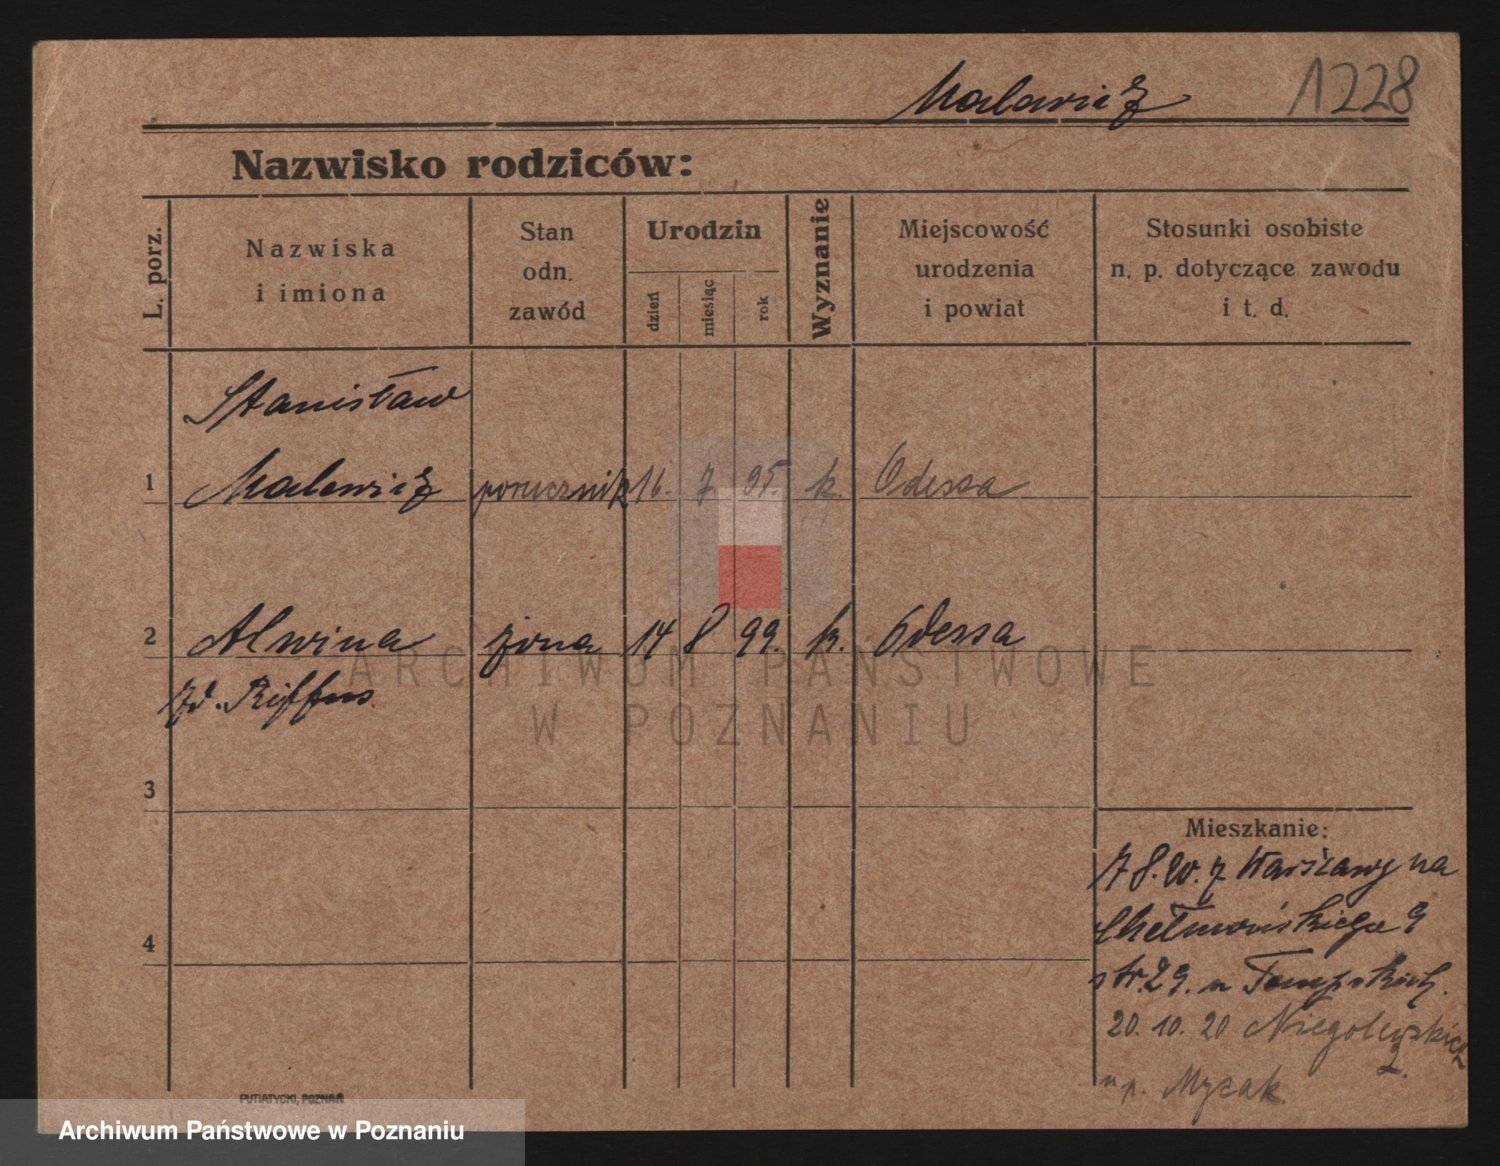 Malewicz 1228
Nazwisko rodziców:
L. porz.
Nazwiska
i imiona
Stan
odn.
zawód
Urodzin
dzień
miesiąc
rok
Wyznanie
Miejscowość
urodzenia
i powiat
Stosunki osobiste
n. p. dotyczące zawodu
i t. d.
Stanisław
1 Malewicz porucznik 16. 7. 95. k. Odessa
2 Alwina żona 14 8 99. k. Odessa
zd.
3
4
Mieszkanie:
8. 20. z Warszawy na
Chełmońskiego 9
str. 29. u
20. 10. 20 Niegolewskich
2.
u p. Myzak.
PUTIATYCKI, POZNAŃ
ARCHIWUM PAŃSTWOWE
W POZNANIU
Archiwum Państwowe w Poznaniu